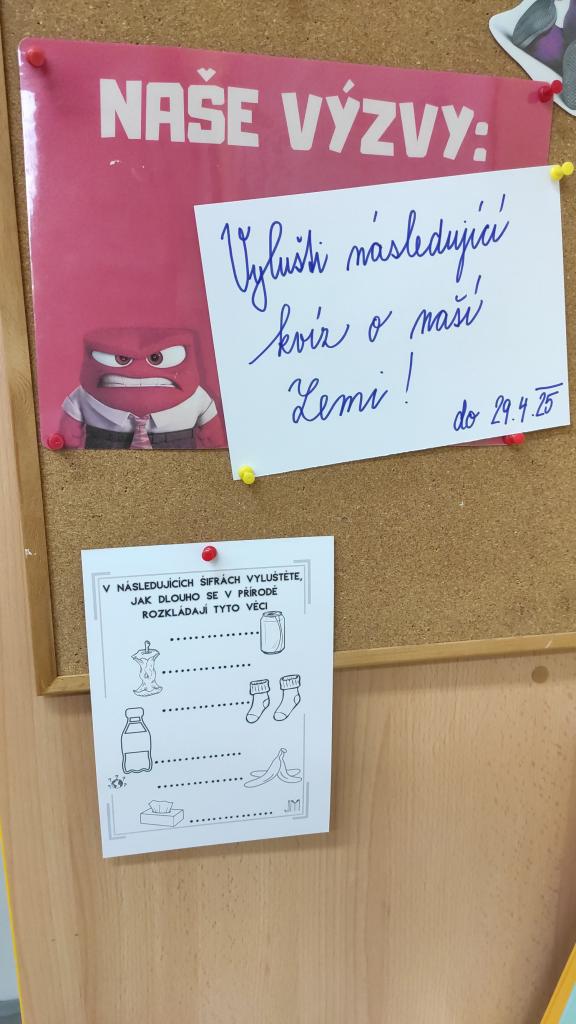 NAŠE VÝZVY:
Vylušti následující
kvíz o naší
Zemi!
do 29.4.25
V NÁSLEDUJÍCÍCH ŠIFRÁCH VYLUŠTĚTE,
JAK DLOUHO SE V PŘÍRODĚ
ROZKLÁDAJÍ TYTO VĚCI
JM